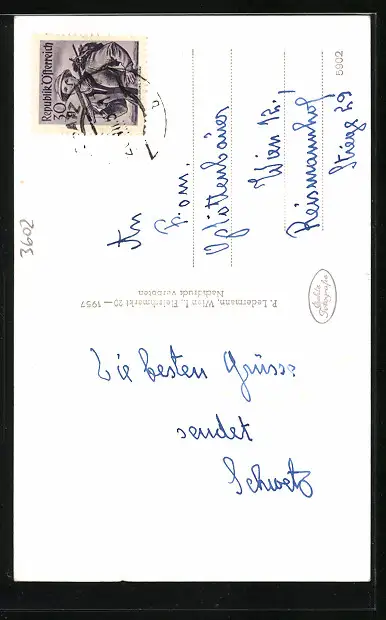 Republik Österreich
30
An
Fam.
Wien 12.
Reismannhof
Stiege 29
5902
3602
P. Ledermann, Wien I., Fleischmarkt 20 — 1957
Nachdruck verboten
Echte
Fotografie
Die besten Grüsse
sendet
Schwetz